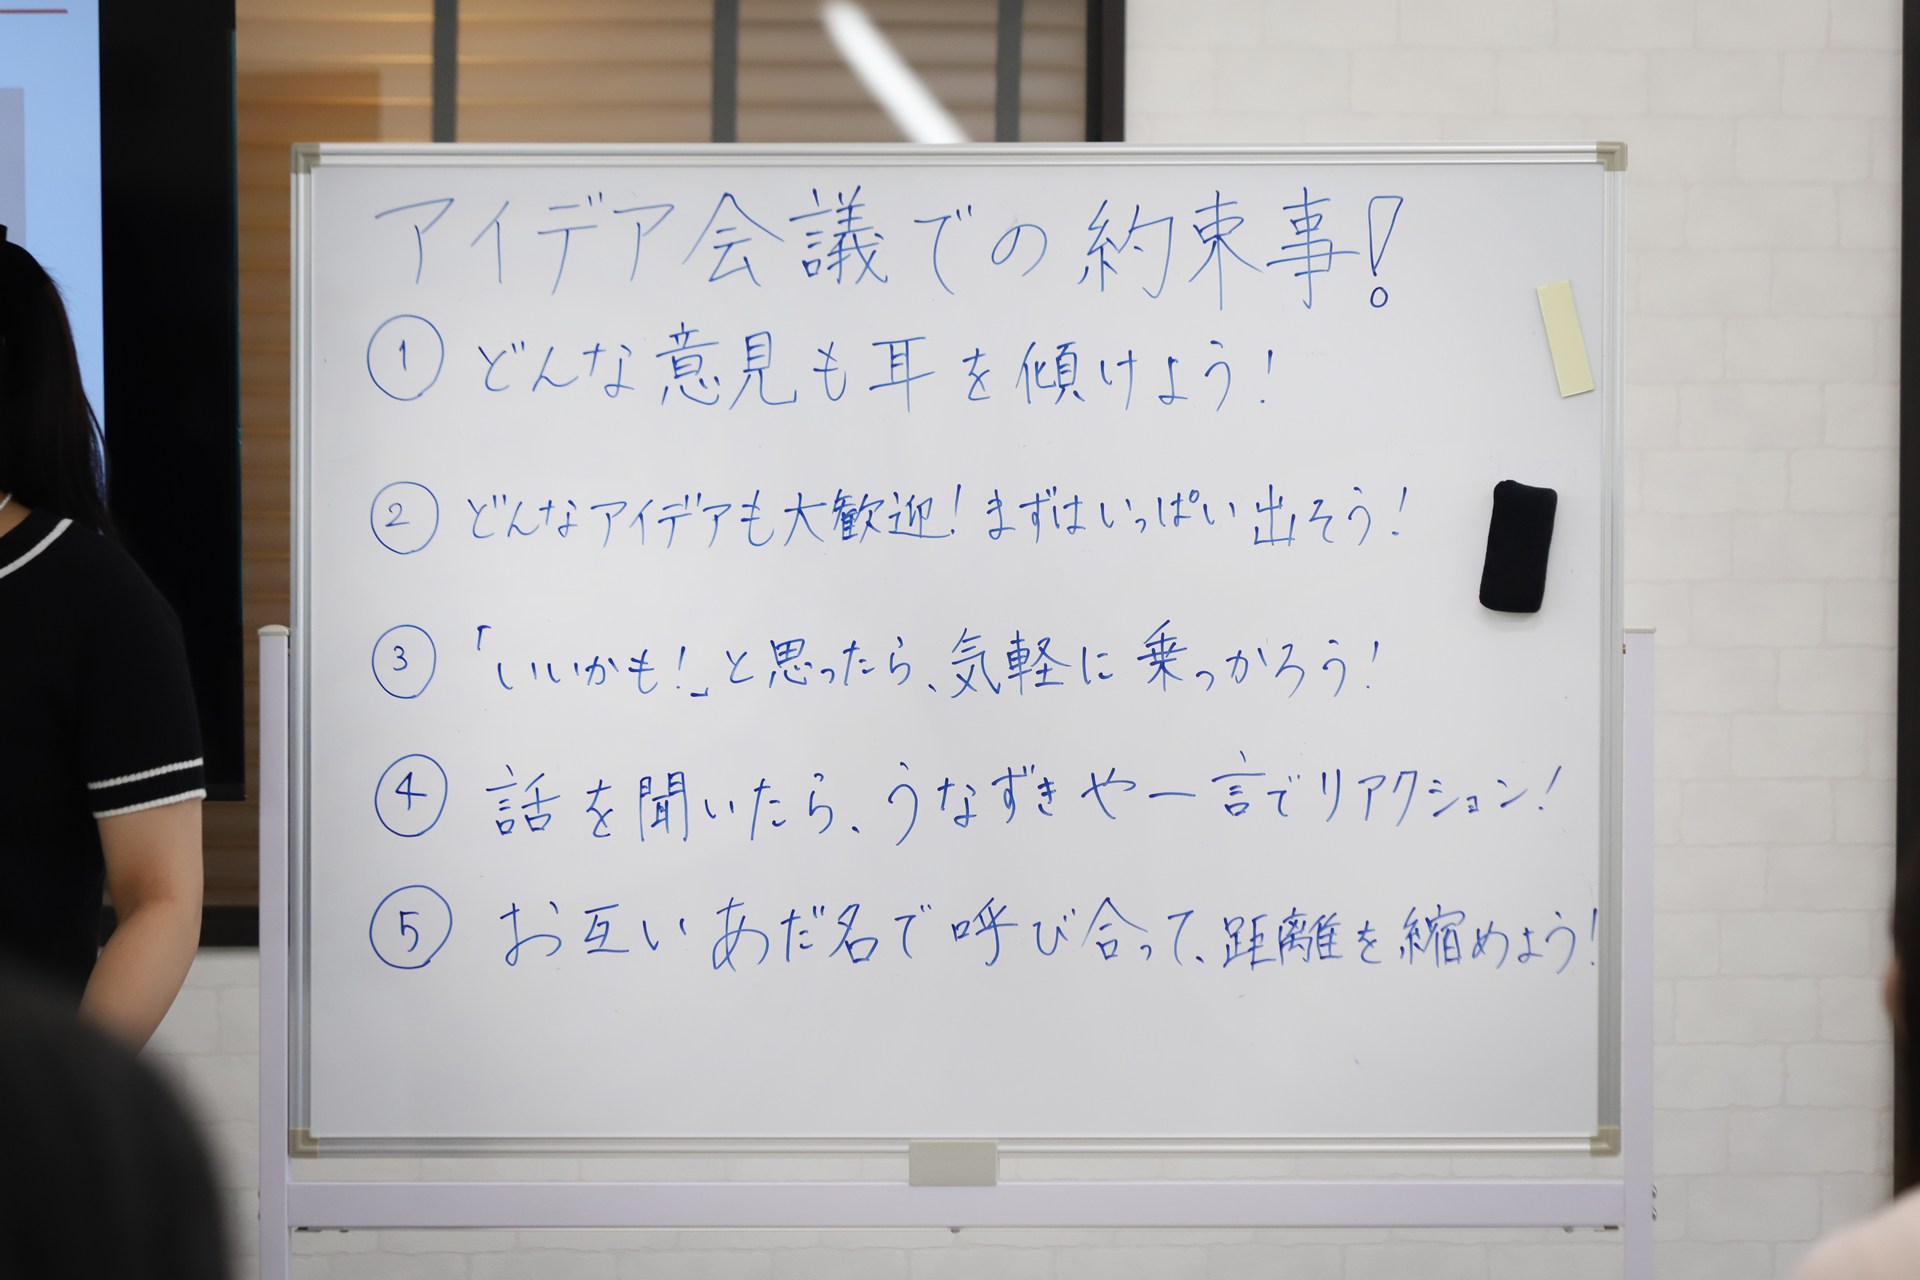 アイデア会議での約束事!
① どんな意見も耳を傾けよう!
② どんなアイデアも大歓迎!まずはいっぱい出そう!
③ 「いいかも!」と思ったら、気軽に乗っかろう!
④ 話を聞いたら、うなずきや一言でリアクション!
⑤ お互いあだ名で呼び合って、距離を縮めよう!